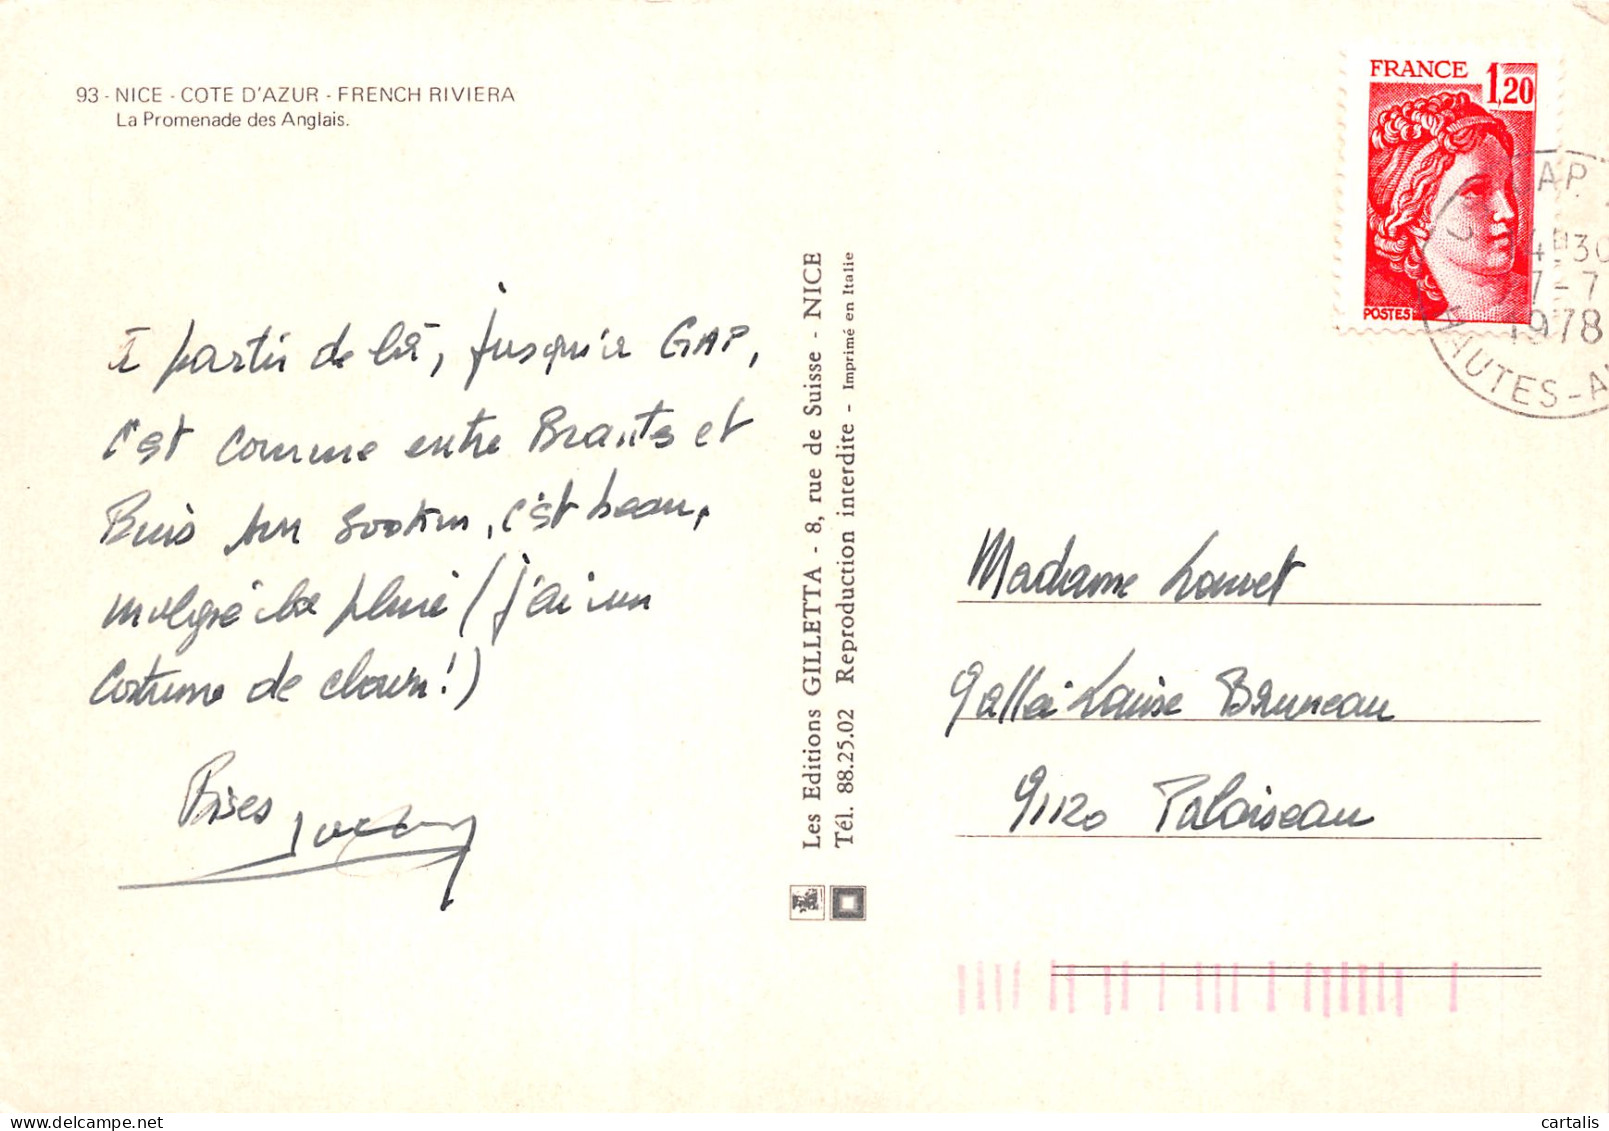 93 - NICE - COTE D'AZUR - FRENCH RIVIERA
La Promenade des Anglais.
à partir de là, jusqu'à GAP,
c'est comme entre Brantes et
Buis sur, c'est beau,
malgré la pluie (j'ai un
costume de clown!)
Bises
Les Editions GILLETTA - 8, rue de Suisse - NICE
Tél. 88.25.02 Reproduction interdite - Imprimé en Italie
FRANCE
1,20
POSTES
GAP
14H30
7-7
1978
HAUTES-A
Madame Louvet
9 allée Louise Bruneau
91120 Palaiseau
cartalis